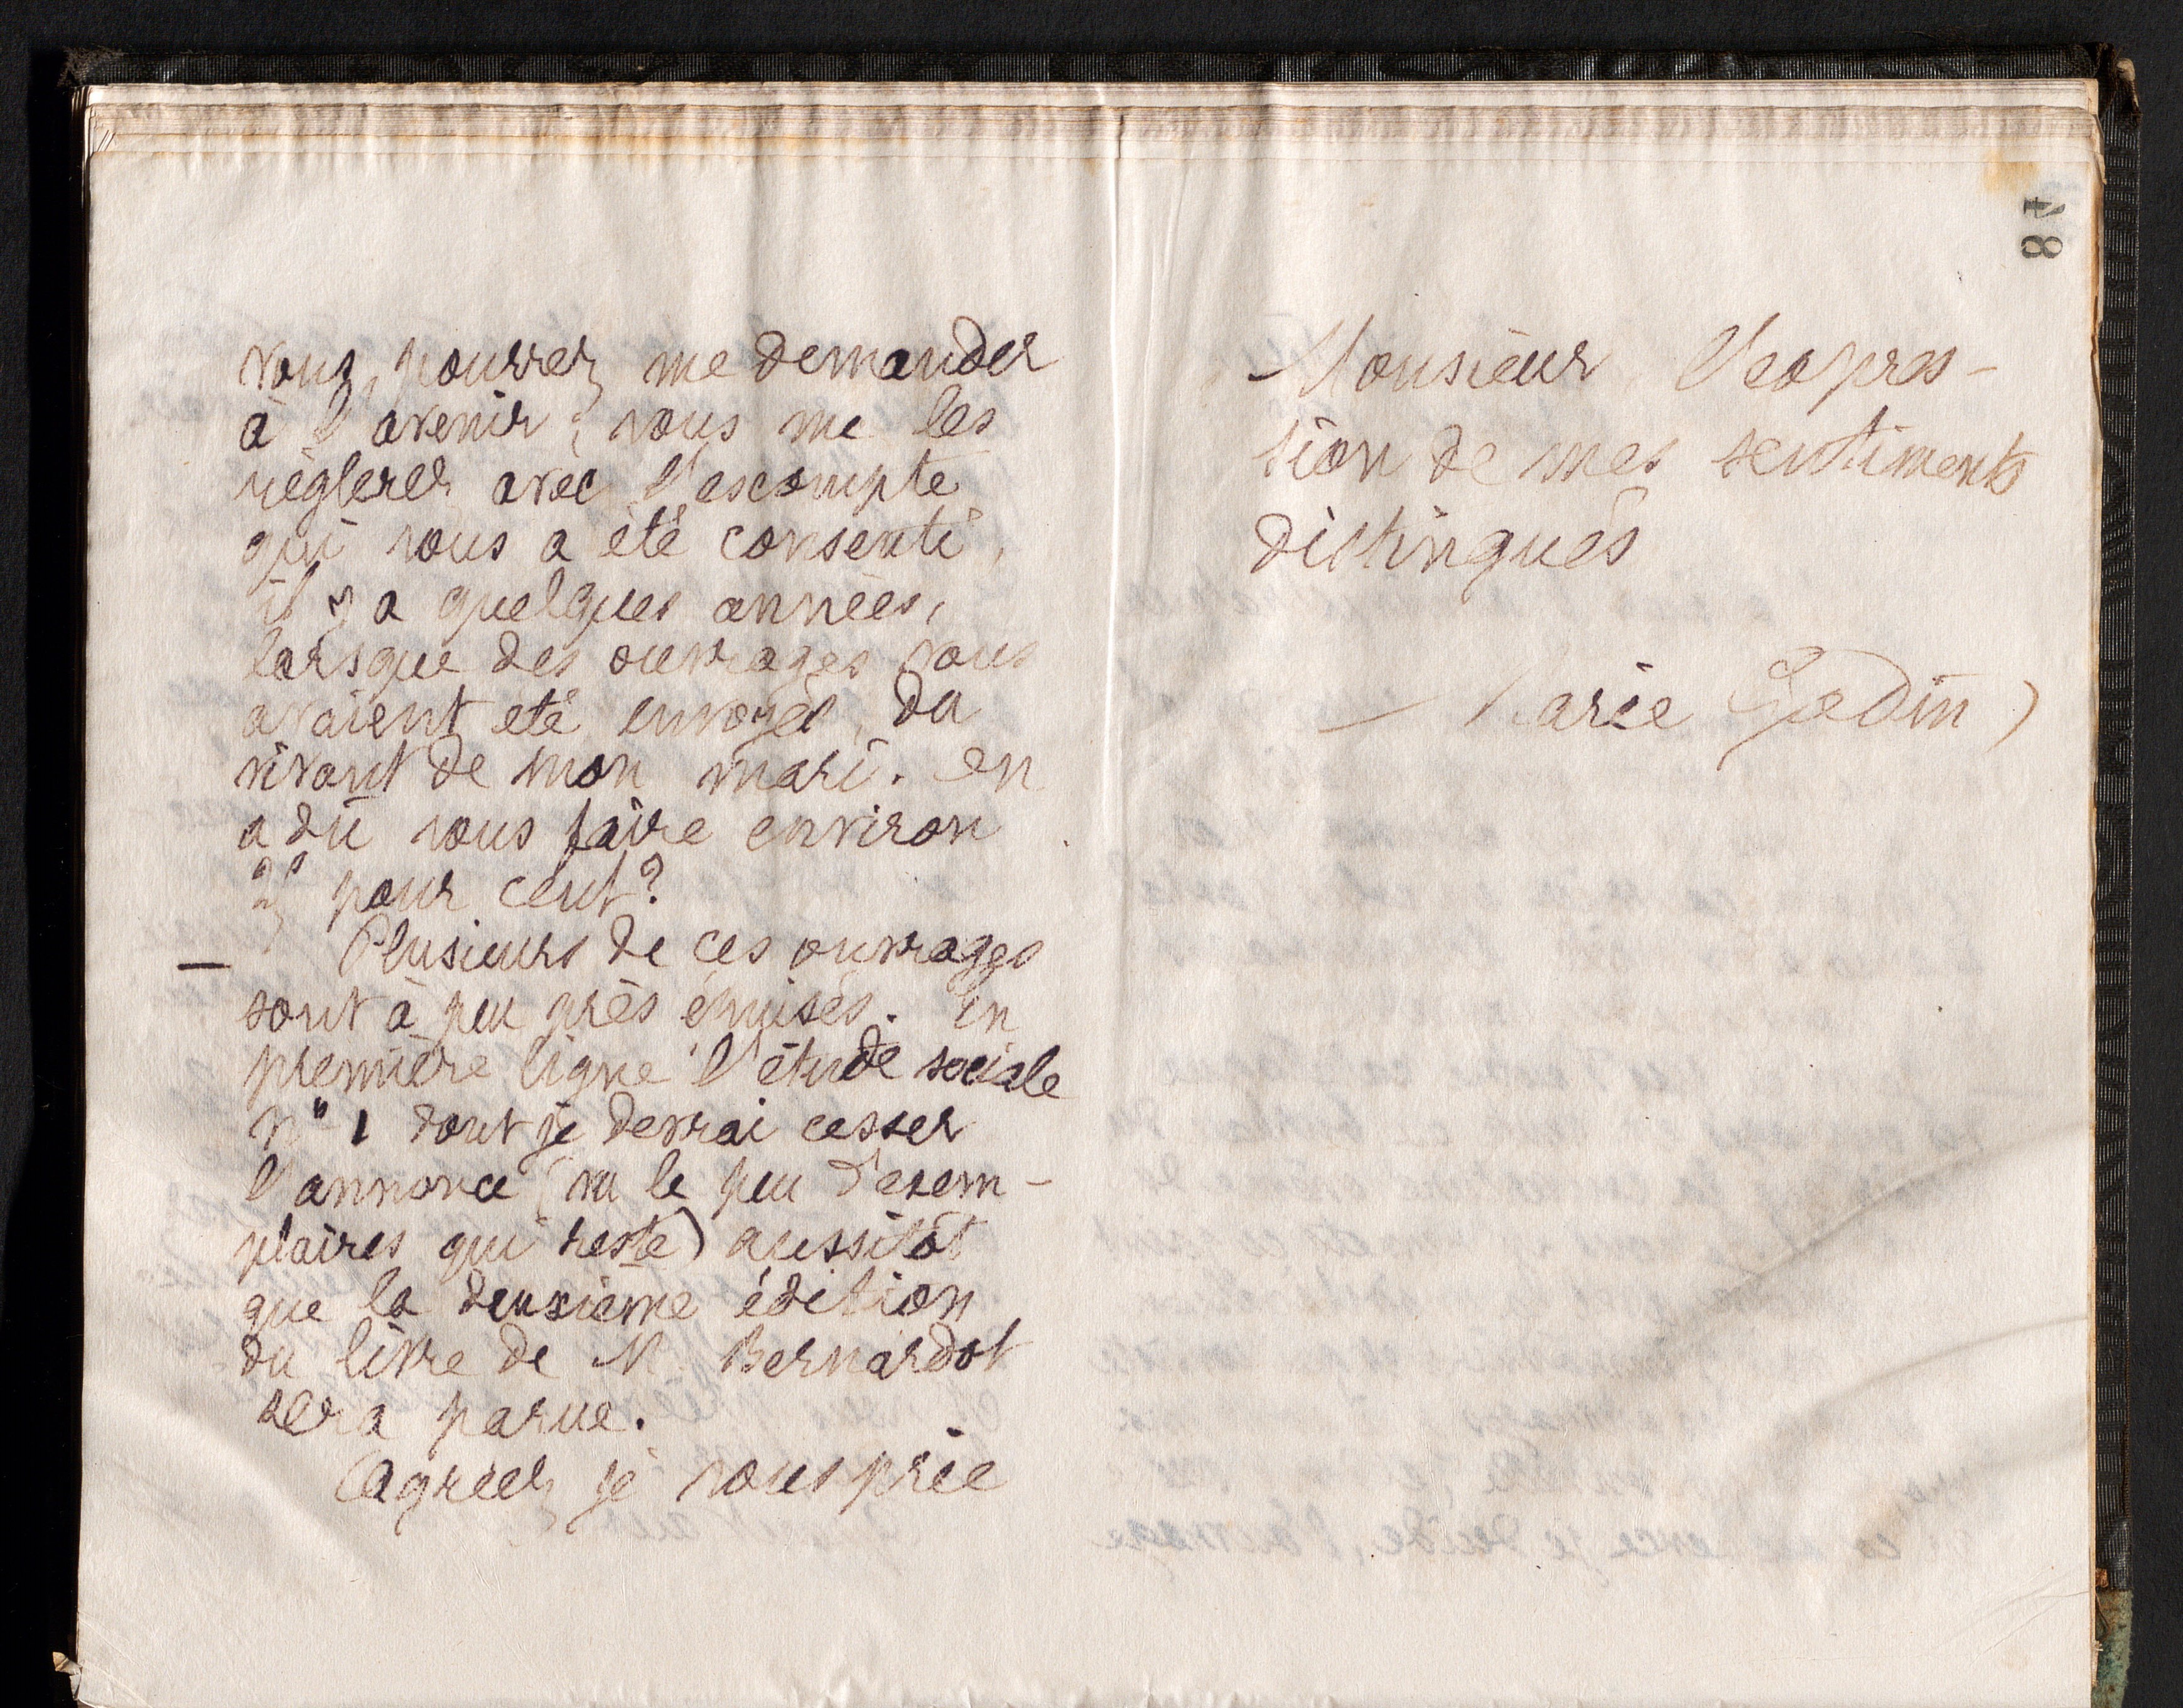 vous pourrez me demander
à l'avenir ; vous me les
règlerez avec l'escompte
qui vous a été consenti,
il y a quelques années,
lorsque des ouvrages vous
avaient été envoyés, du
vivant de mon mari. On
a dû vous faire environ
pour cent ?
— Plusieurs de ces ouvrages
sont à peu près épuisés. En
première ligne l'étude sociale
n° 1 dont je devrai cesser
l'annonce (vu le peu d'exem-
plaires qui reste) aussitôt
que la deuxième édition
du livre de M. Bernardot
sera parue.
Agréez je vous prie
Monsieur l'expres-
sion de mes sentiments
distingués
Marie Godin